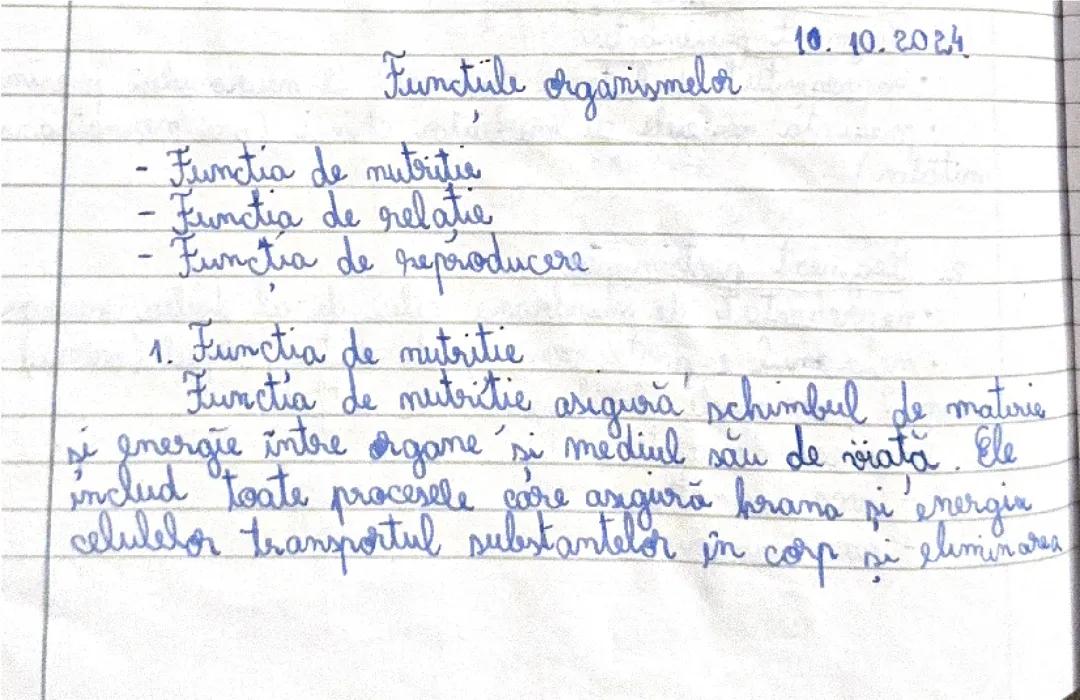 10. 10. 2024
Funcțiile organismelor
- Funcția de nutriție
- Funcția de relație
- Funcția de reproducere
1. Funcția de nutriție
Funcția de nutriție asigură schimbul de materie
și energie între organe și mediul său de viață. Ele
includ toate procesele care asigură hrana și energia
celulelor transportul substanțelor în corp și eliminarea